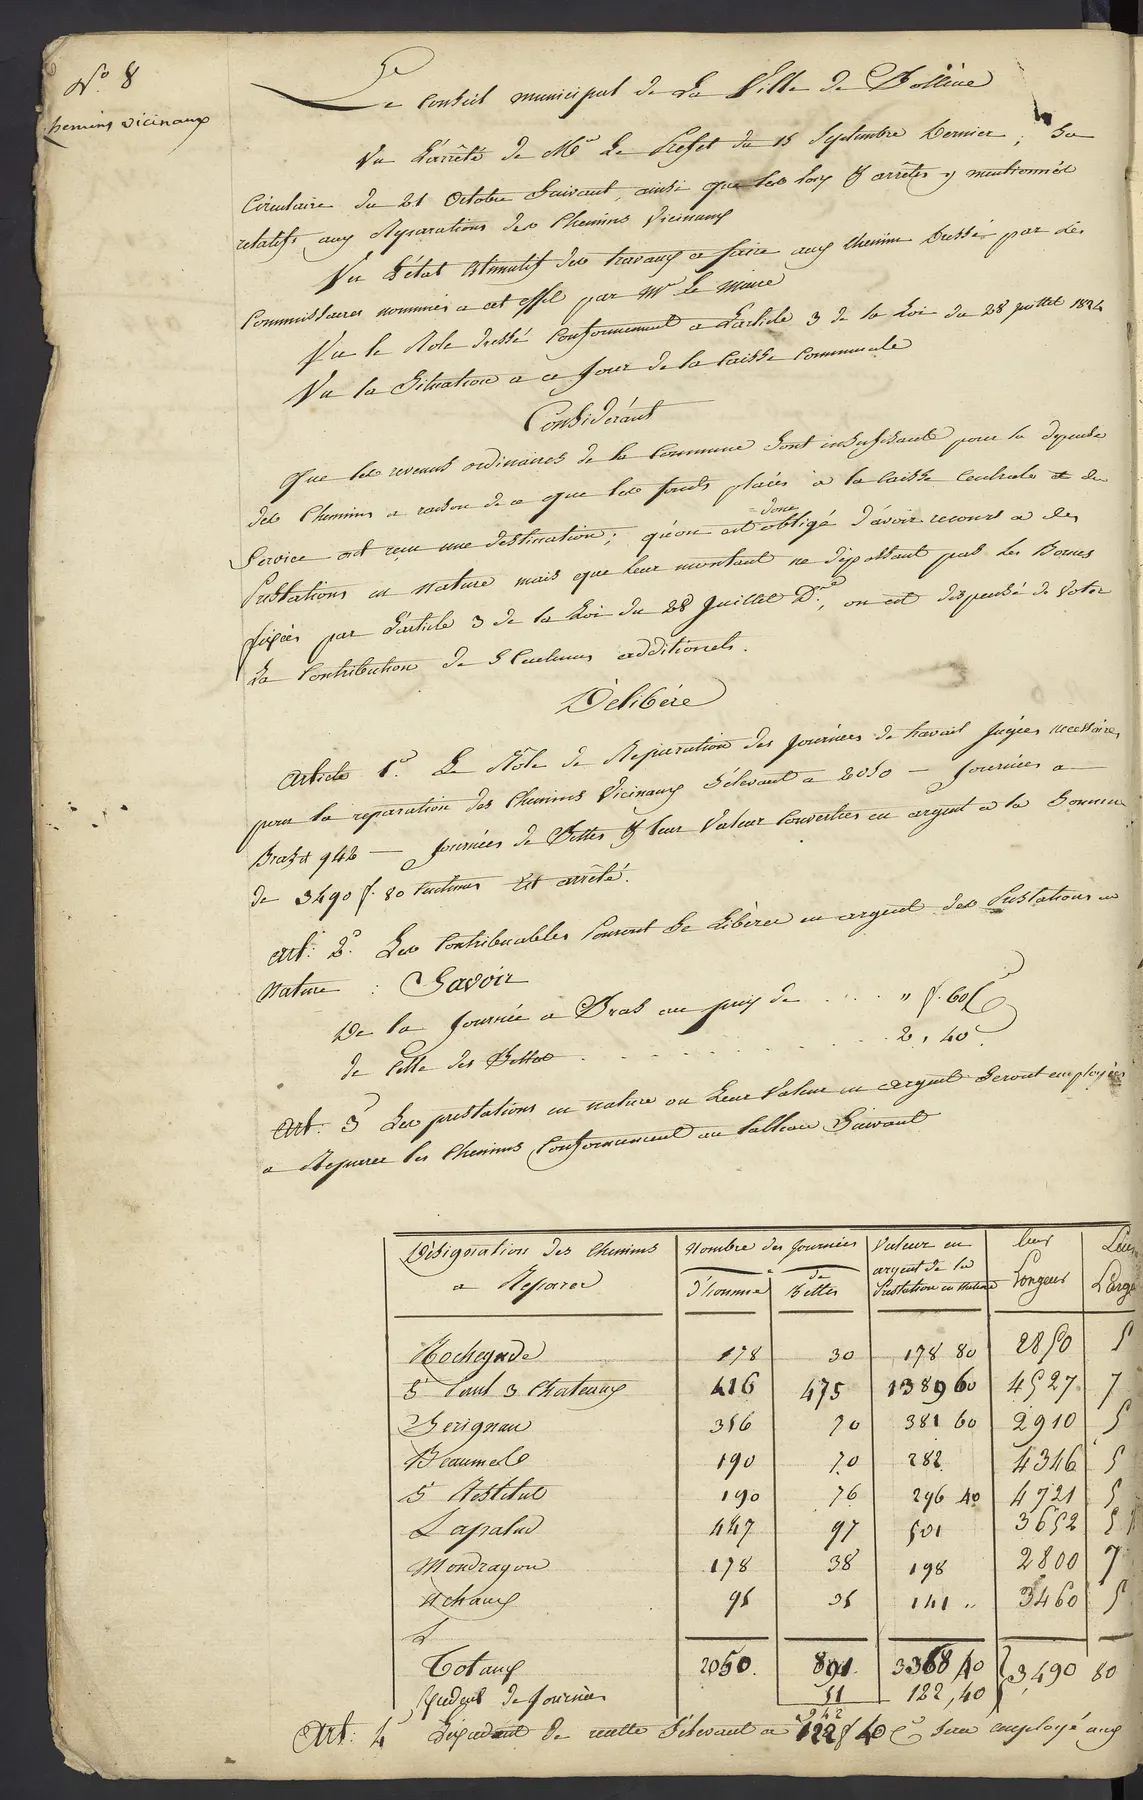 N.o 8
chemins vicinaux
Le Conseil municipal de La Ville de Bollène
Vu L'arrêté de Mr Le Préfet du 15 Septembre Dernier, Sa
Circulaire du 21 Octobre Suivant, ainsi que les loix & arrêtés y mentionnés
relatifs aux Réparations des Chemins Vicinaux
Vu L'état estimatif des travaux a faire aux Chemins Dressé par des
Commissaires nommés a cet effet par Mr Le Maire
Vu le Role dressé Conformement a L'article 3 de la Loi du 28 Juillet 1824
Vu la Situation a ce Jour de la Caisse Communale
Considérant
Que les revenus ordinaires de la Commune Sont insufisants pour la dépense
des Chemins a raison de ce que les fonds placés a la caisse Centrale et de
Service ont reçu une destination; qu'on est donc obligé d'avoir recours a des
Prestations en Nature mais que leur montant ne dépassant pas les Bornes
fixées par L'article 3 de la Loi du 28 Juillet D.re, on est dispensé de Voter
La Contribution de 5 Centimes additionels.
Délibére
Article 1er. Le Rôle de Réparation des Journées de travail Jugées necessaires
pour la réparation des Chemins Vicinaux S'élevant a 2050 — Journées a
Bras et 942 — Journées de Bettes & leur Valeur Converties en argent a la Somme
de 3490 f. 80 Centimes Est arrêté.
Art: 2e. Les Contribuables Pouront Se Libérer en argent des Prestations en
Nature : Savoir
De la Journée a Bras au prix de . . . . " f. 60 C
de Celle des Bettes . . . . . . . . . . 2, 40
Art. 3 Les prestations en nature ou Leur Valeur en argent Seront employées
a Reparer les Chemins Conformement au tableau Suivant
Désignation des Chemins a Réparer | Nombre des Journées d'homme | de Bettes | Valeur en argent de la Prestation en Nature | leur Longeur | Leur Large
Rochegude 178 30 178 80 2850 5
St Paul 3 Chateaux 416 475 1389 60 4527 7
Serignan 356 70 381 60 2910 5
Beaumele 190 70 282 4346 5
St Restitut 190 76 296 40 4721 5
Lapalud 447 97 501 3652 5
Mondragon 178 38 198 2800 7
Achaux 95 35 141 „ 3460 5
Totaux 2050. 891. 3368 40 3490 80
Exedent de Journées 51 122, 40
942
Art: 4 L'éxedent de recette S'élevant a 122 f 40 C Sera employé aux